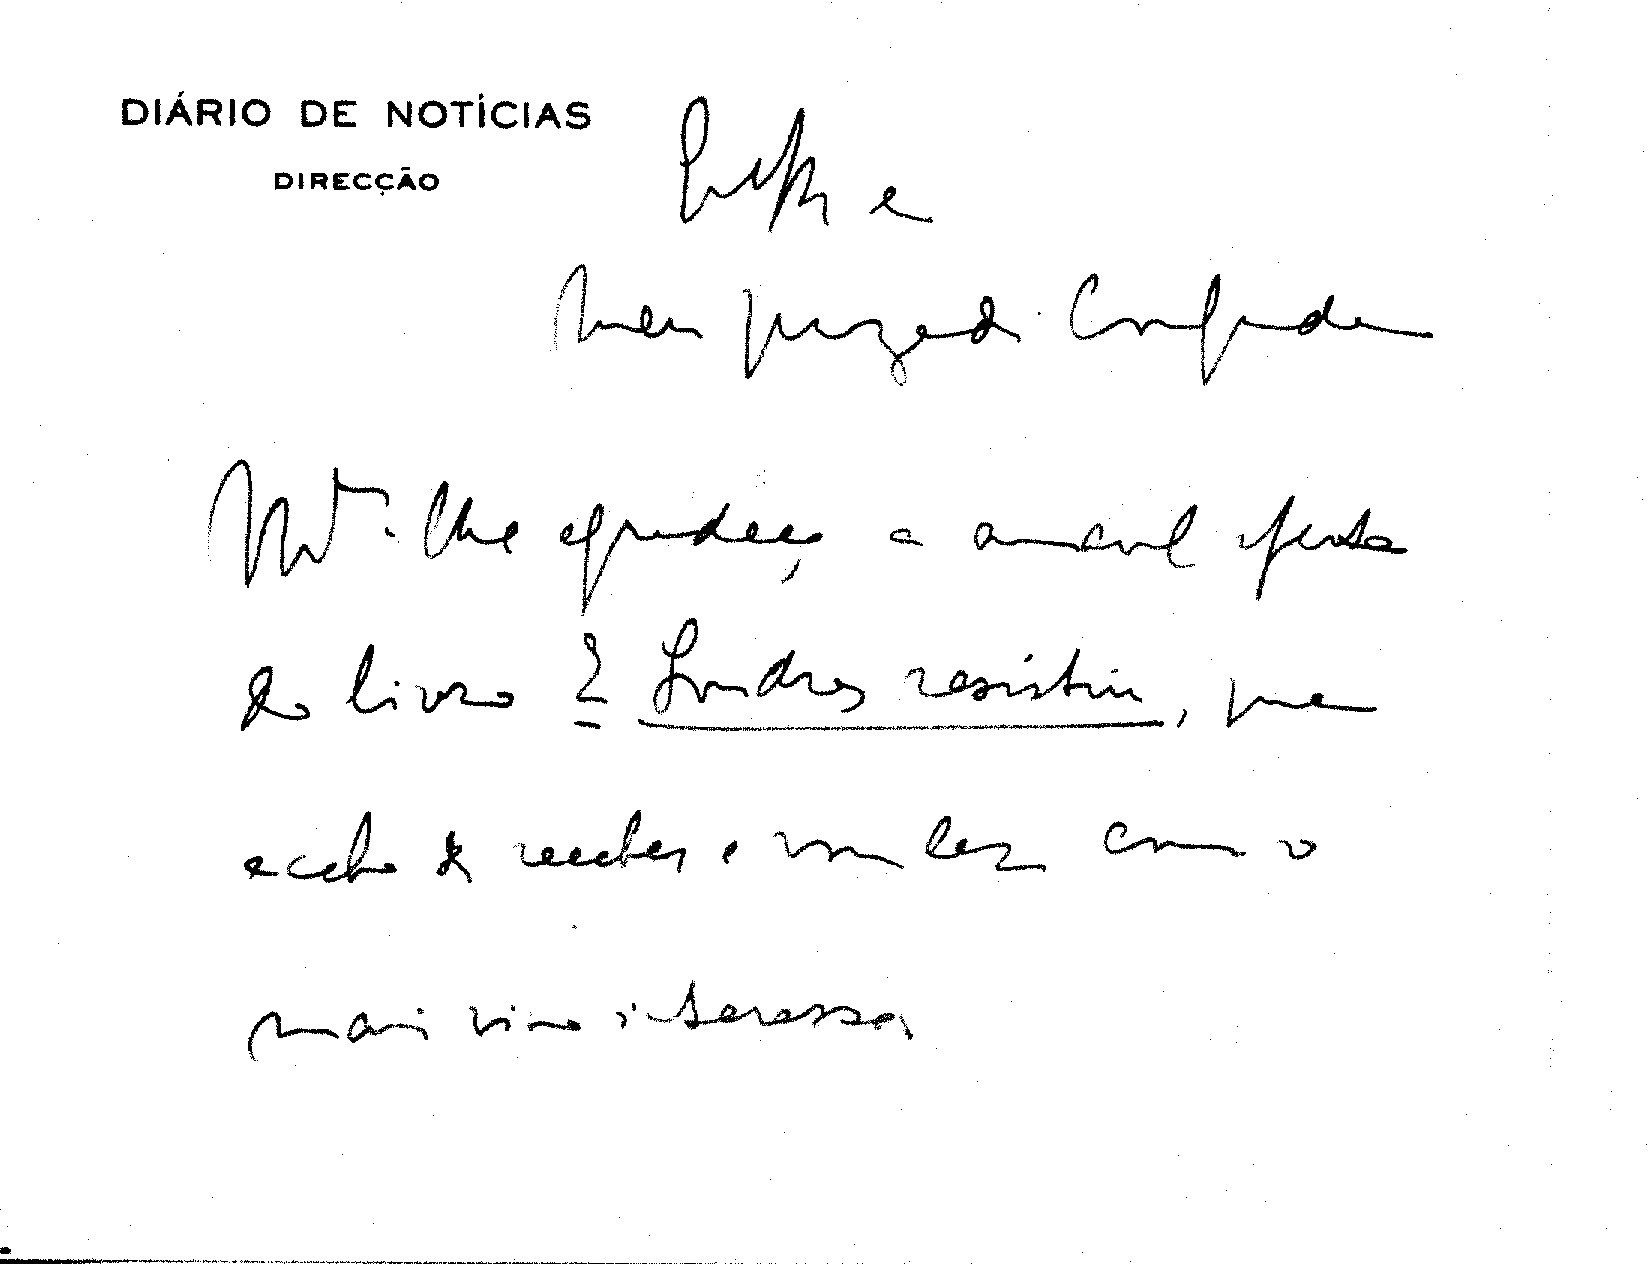 DIÁRIO DE NOTÍCIAS
DIRECÇÃO
e
Meu prezado Confrade
Mto. lhe agradeço a amavel oferta
do livro E Londres resistiu, que
acabo de receber e vou ler com o
mais vivo interesse